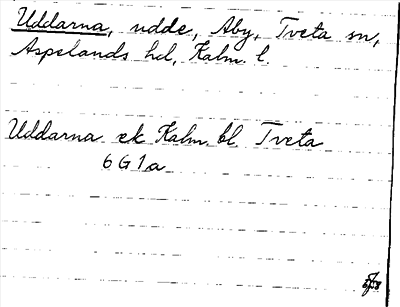 Uddarna, udde, Åby, Tveta sn,
Aspelands hd, Kalm. l.
Uddarna ek Kalm. bl. Tveta
6 G 1 a